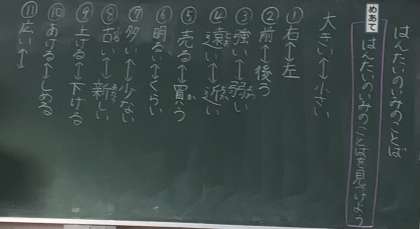 はんたいのいみのことば
めあて はんたいのいみのことばを見つけよう
大きい↔小さい
①右↔左
②前↔後ろ
③強い↔弱い
④遠い↔近い
⑤売る↔買う
⑥明るい↔くらい
⑦多い↔少ない
⑧古い↔新しい
⑨上げる↔下げる
⑩あける↔しめる
⑪広い↔